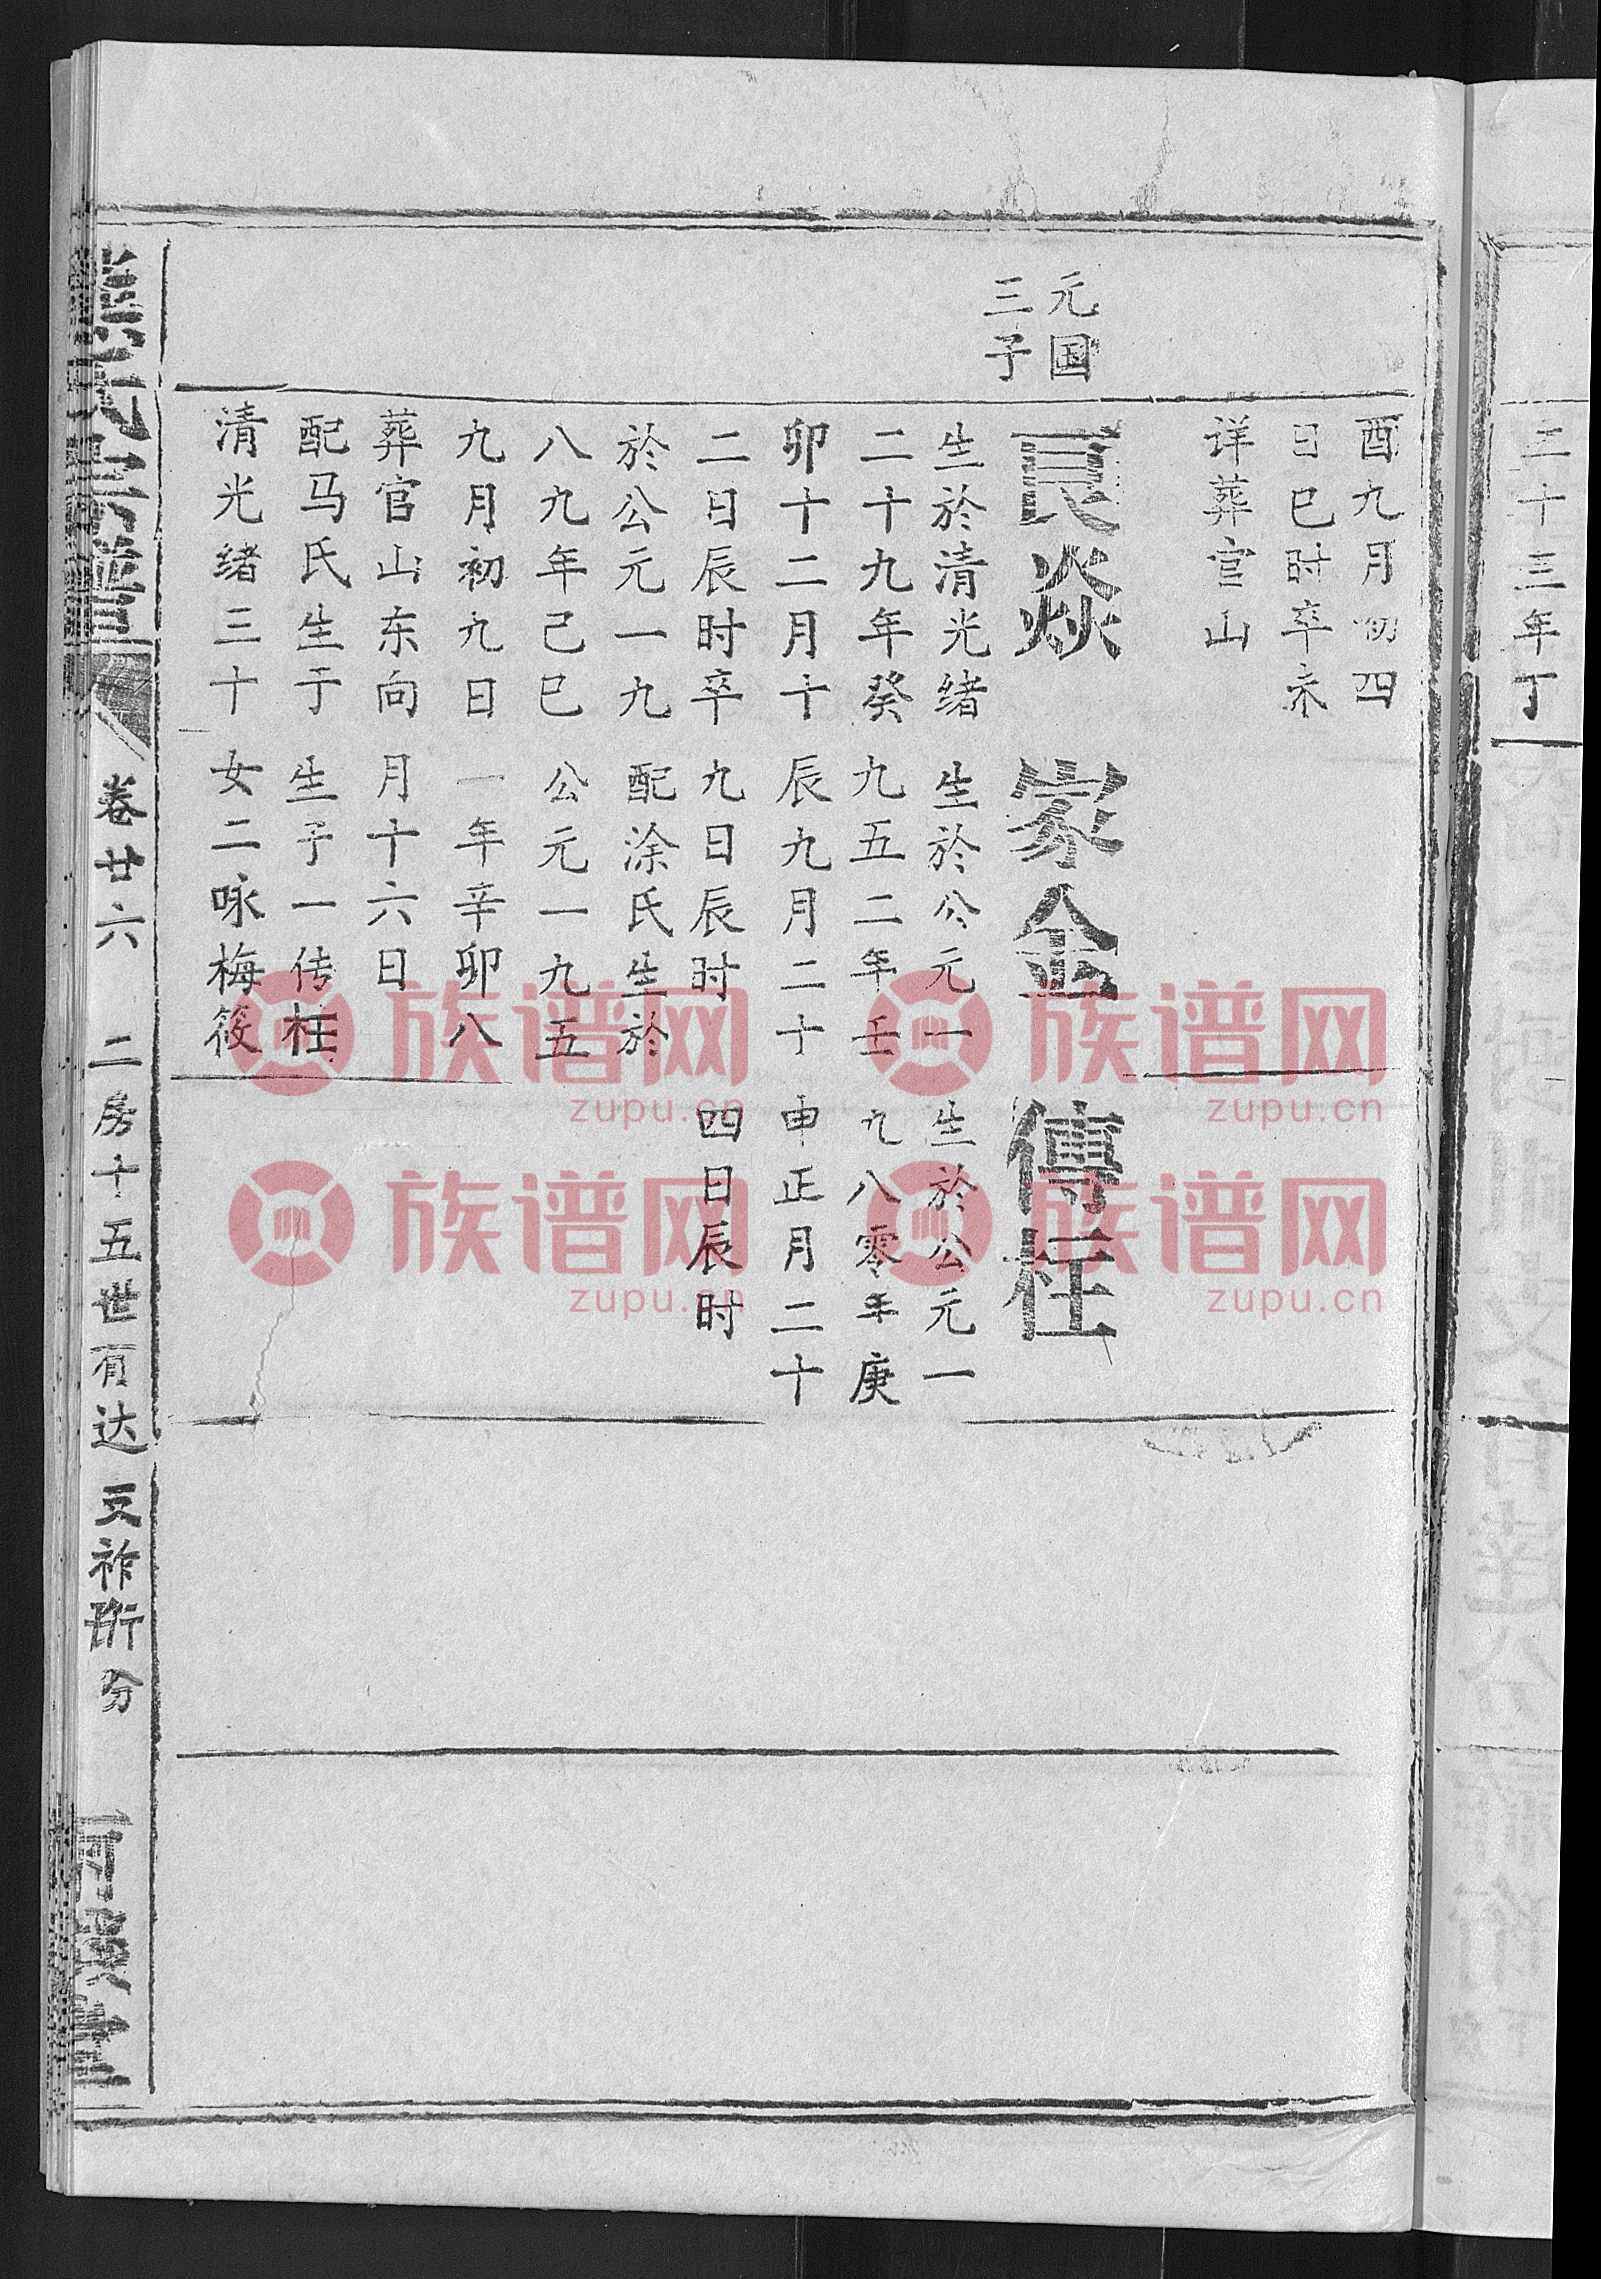 二十三年丁
酉九月初四
日巳时卒未
详葬官山
元国
三子
良焱
生於清光绪
二十九年癸
卯十二月十
二日辰时卒
於公元一九
八九年己巳
九月初九日
葬官山东向
配马氏生于
清光绪三十
家金
生於公元一
九五二年壬
辰九月二十
九日辰时
配涂氏生於
公元一九五
一年辛卯八
月十六日
生子一传枉
女二咏梅筱
傳枉
生於公元一
九八零年庚
申正月二十
四日辰时
熊氏宗譜
卷廿六
二房十五世有达
文祚珩分
族谱网
zupu.cn
族谱网
zupu.cn
族谱网
zupu.cn
族谱网
zupu.cn